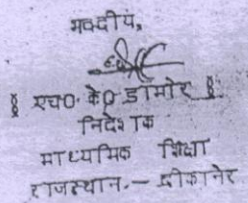 भवदीय,
§ एच0 के0 डामोर §
निदेशक
माध्यमिक शिक्षा
राजस्थान.— बीकानेर